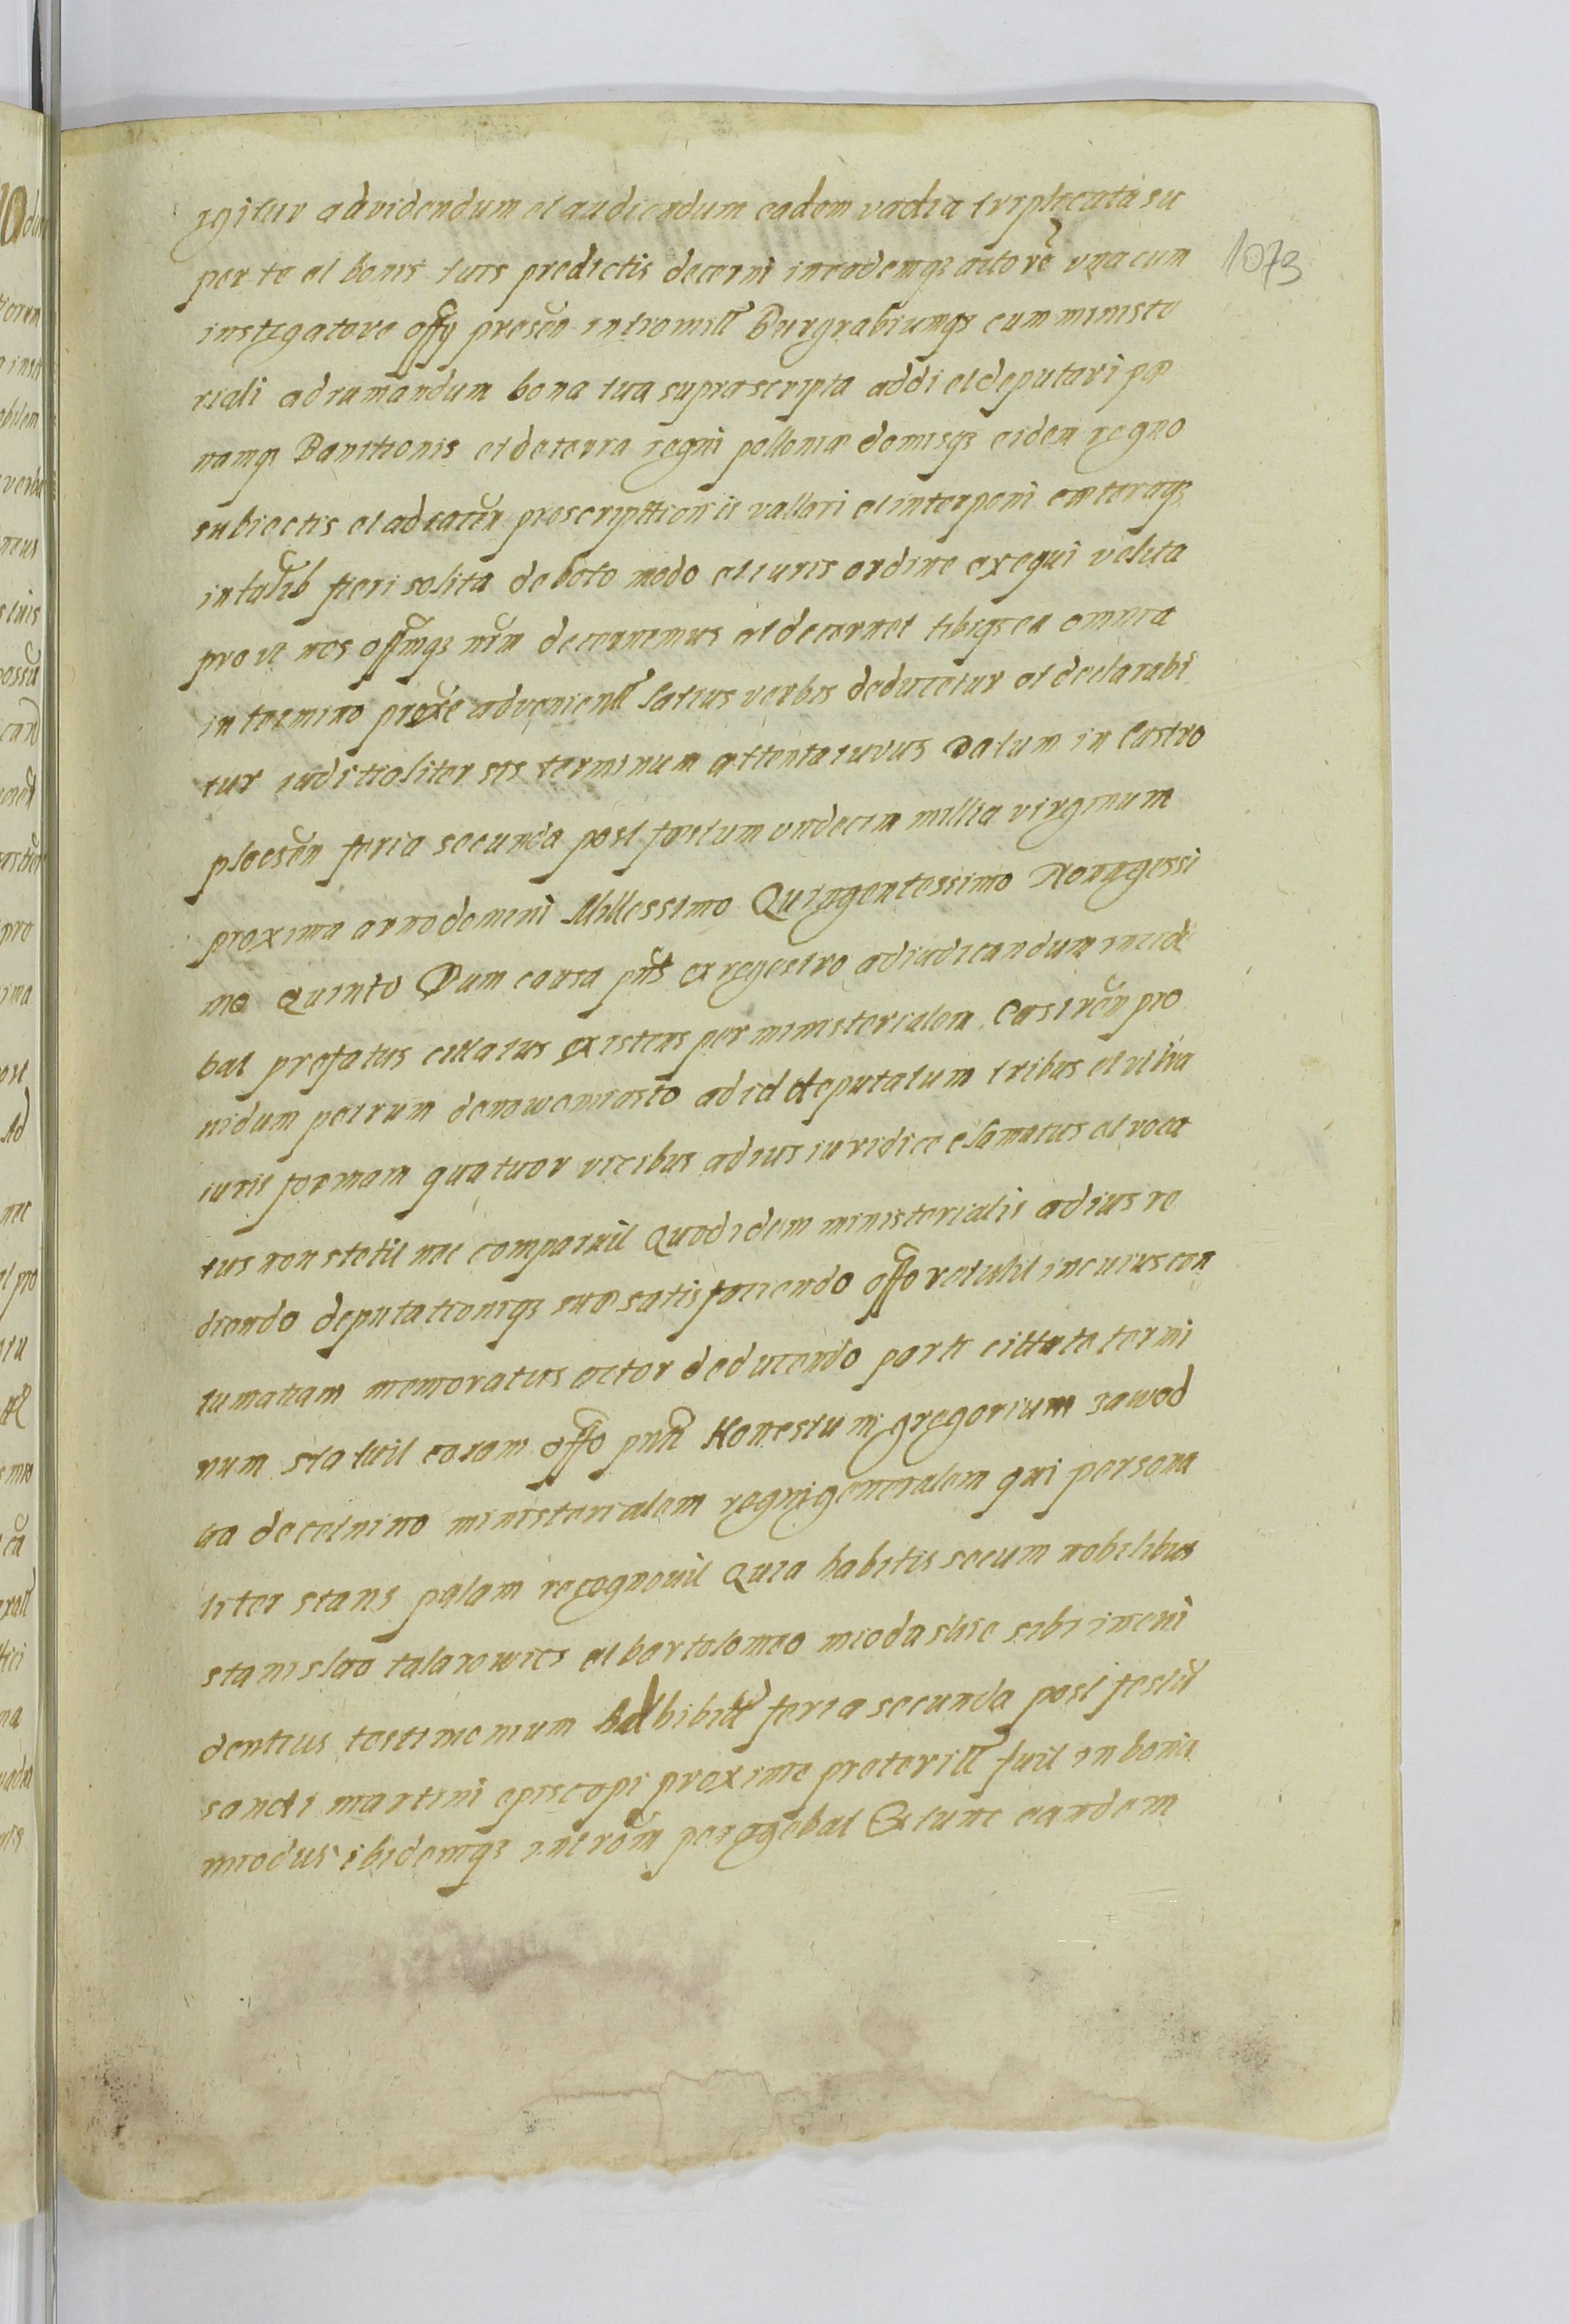 igitur ad videndum et audiendum eadem vadia triplicata su
per te et bonis tuis predictis decerni in eademqз actorē vna cum
instigatore offÿ presēn intromitt Burgrabiumqз cum ministe
riali ad ramandum bona tua suprascripta addi et deputari pœ
namqз Banitionis et de terra regni polloniæ domisqз eidem regno
subiectis et ad catēn proscripttionis vallari et interponi cæteraqз
in talib fieri solita deboto modo et iuris ordine exequi veluta
prove nos offmqз nrm decernemus et decernet tibiqз ea omnia
in termino proxe advenientt latius verbis deducetur et declarabi
tur iuditialiter sis terminum attentaturus Datum in Castro
plocsēn feria secunda post festum vndecim millia virginum
proxima anno domini Millessimo Quingentessimo Nonagessi
mo Quinto Dum causa pñs ex regestro ad iudicandum incide
bat prefatus cittatus existens per ministerialem Castrēn pro
uidum petrum de nowemiasto ad id deputatum tribus et vltra
iuris formam quatuor vicibus ad ius iuridice clamatus et voca
tus non stetit nec comparuit Quod idem ministerialis ad ius re
diendo deputationiqз suæ satisfaciendo offo retulit in cuius con
tumatiam memoratus actor deducendo parti cittatæ termi
num statuit coram offo pnñ Honestum gregorium zawod
ka de celnino ministerialem regni generalem qui persona
liter stans palam recognovit Quia habitis secum nobilibus
stanislao talarowicz et bartolomeo miodaskie sibi in eui
dentius testimonium adhibitt feria secunda post festū
sancti martini episcopi proxime preteritt fuit in bonis
miodus ibidemqз incrōm peragebat Extunc eandem
1073